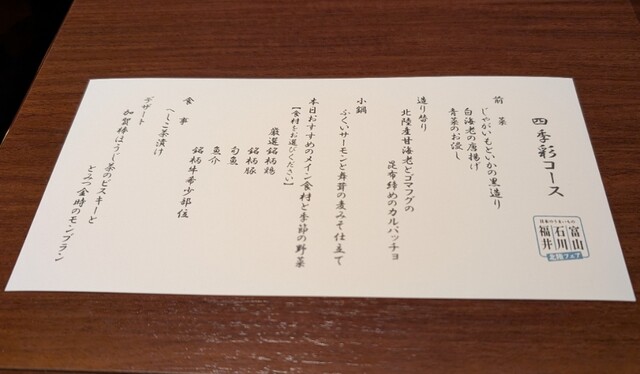 四季彩コース
日本のうまいもの
富山
石川
福井
北陸フェア
前菜
じゃがいもといかの黒造り
白海老の唐揚げ
青菜のお浸し
造り替り
北陸産甘海老とゴマフグの
昆布締めのカルパッチョ
小鍋
ふくいサーモンと舞茸の麦みそ仕立て
本日おすすめのメイン食材と季節の野菜
【食材をお選びください】
厳選銘柄鶏
銘柄豚
旬魚
魚介
銘柄牛希少部位
食事
へしこ茶漬け
デザート
加賀棒ほうじ茶のビスキーと
とみつ金時のモンブラン